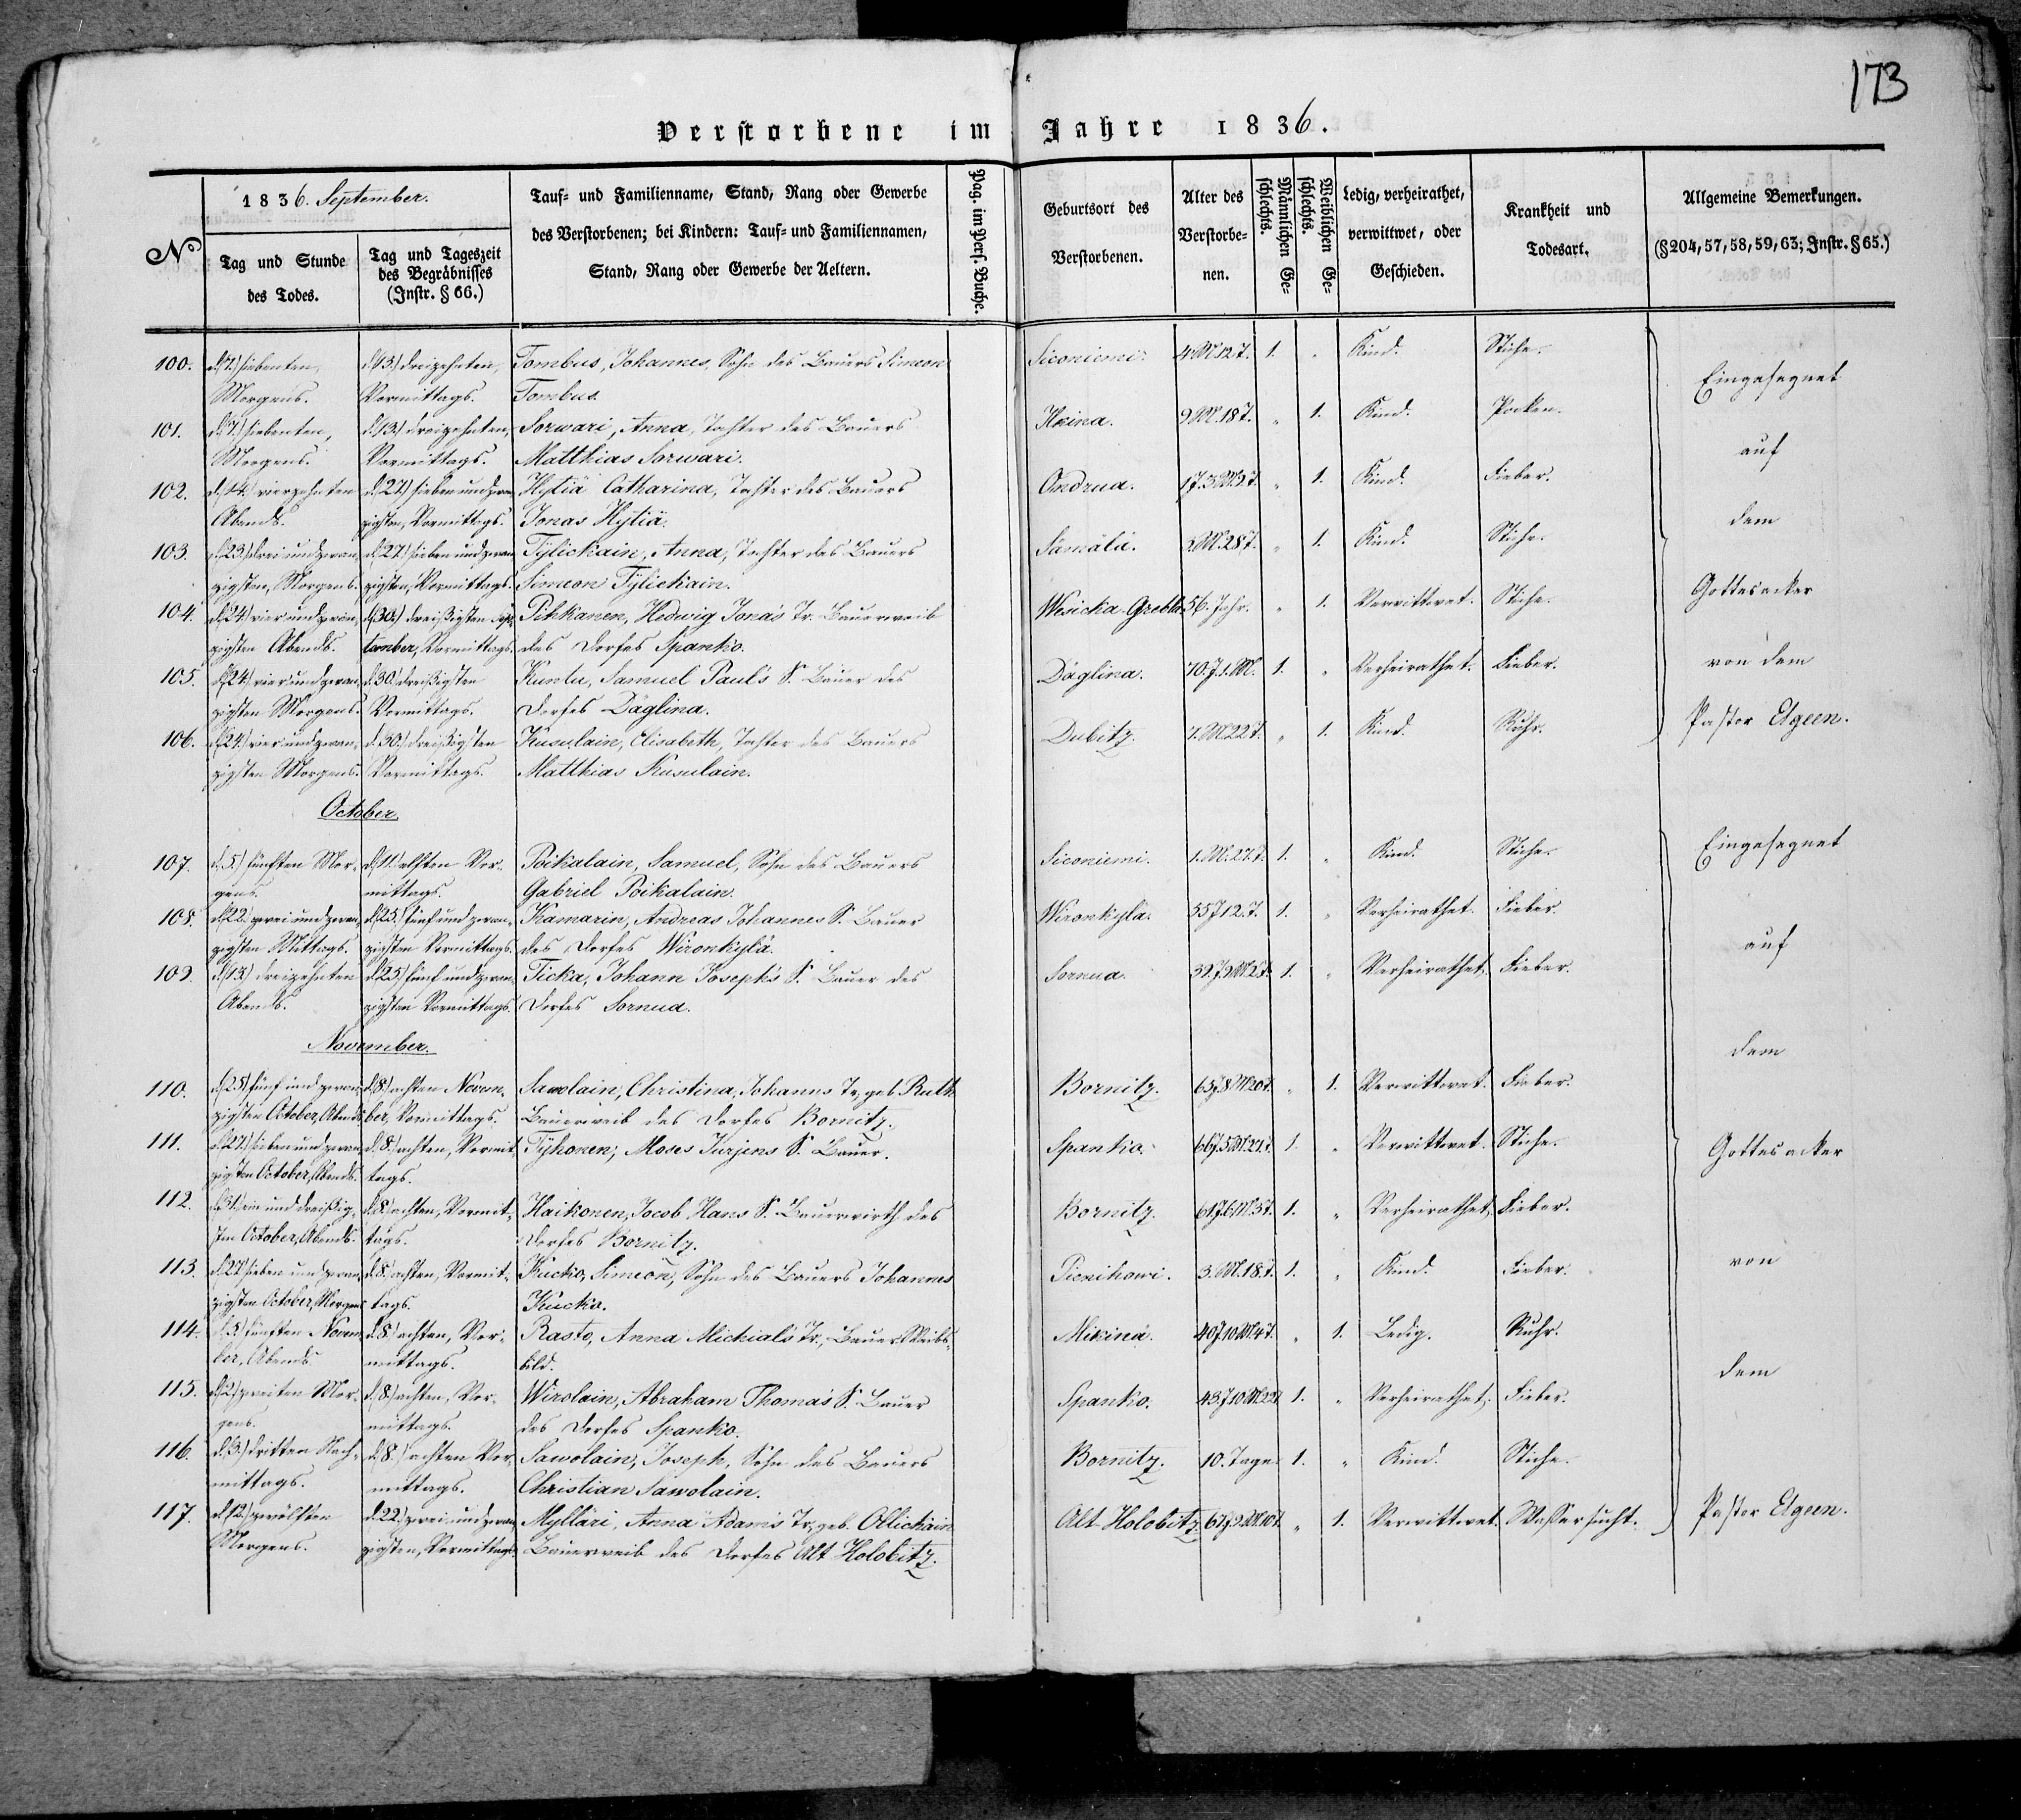 173
Verstorbene im Jahre 1836.
N°
1836. September.
Tag und Stunde des Todes.
Tag und Tageszeit des Begräbnisses (Instr. § 66.)
Tauf- und Familienname, Stand, Rang oder Gewerbe des Verstorbenen; bei Kindern: Tauf- und Familiennamen, Stand, Rang oder Gewerbe der Aeltern.
Pag. im Pers. Buche.
Geburtsort des Verstorbenen.
Alter des Verstorbenen.
Männlichen Geschlechts.
Weiblichen Geschlechts.
Ledig, verheirathet, verwittwet, oder Geschieden.
Krankheit und Todesart.
Allgemeine Bemerkungen. (§ 204, 57, 58, 59, 63; Instr. § 65.)
100. d. 7.) siebenten, d. 13.) dreizehnten, Tombus, Johannes, Sohn des Bauers Simeon Siconiemi. 4 M. 12 T. 1. " Kind. Stiche.
Morgens. Vormittags. Tombus.
101. d. 7.) siebenten, d. 13.) dreizehnten, Sorwari, Anna, Tochter des Bauers Ikina. 9 M. 18 T. " 1. Kind. Pocken.
Morgens. Vormittags. Matthias Sorwari.
102. d. 14.) vierzehnten d. 27.) sieben und zwan- Hytiä Catharina, Tochter des Bauers Ondrua. 1 J. 3 M. 2 T. " 1. Kind. Fieber.
Abends. zigsten, Vormittags. Jonas Hytiä.
103. d. 23.) drei und zwan- d. 27.) sieben und zwan- Tylickain, Anna, Tochter des Bauers Sämälä. 5 M. 28 T. " 1. Kind. Stiche.
zigsten, Morgens. zigsten, Vormittags. Simeon Tylickain.
104. d. 24.) vier und zwan- d. 30.) dreißigsten Sep- Pihkanen, Hedwig Jonas Tr. Bauerweib Wesicka Grebla. 56. Jahr. " 1. Verwittwet. Stiche.
zigsten Abends. tember, Vormittags. des Dorfes Spanko.
105. d. 24.) vier und zwan- d. 30.) dreißigsten Kuntu, Samuel Paul's S. Bauer des Däglina. 70. J. 1. M. 1. " Verheirathet. Fieber.
zigsten Morgens. Vormittags. Dorfes Däglina.
106. d. 24.) vier und zwan- d. 30.) dreißigsten Kusulain, Elisabeth, Tochter des Bauers Dubitz. 7. M. 22 T. " 1. Kind. Ruhr.
zigsten Morgens. Vormittags. Matthias Kusulain.
Eingesegnet
auf
dem
Gottesacker
von dem
Pastor Elgeen.
October.
107. d. 5.) fünften Mor- d. 11.) elften Vor- Poikalain, Samuel, Sohn des Bauers Siconiemi. 1. M. 27. T. 1. " Kind. Stiche.
gens. mittags. Gabriel Poikalain.
108. d. 22.) zwei und zwan- d. 25.) fünf und zwan- Kamarin, Andreas Johannes S. Bauer Wironkylä. 55 J. 12. T. 1. " Verheirathet. Fieber.
zigsten Mittags. zigsten Vormittags. des Dorfes Wironkylä.
109. d. 13.) dreizehnten d. 25.) fünf und zwan- Ticka, Johann Joseph's S. Bauer des Sornua. 39. J. 9 M. 2 T. 1. " Verheirathet. Fieber.
Abends. zigsten Vormittags. Dorfes Sornua.
November.
110. d. 25.) fünf und zwan- d. 8.) achten Novem- Sawolain, Christina, Johanns Tr. geb. Ruth Bornitz. 65 J. 8 M. 20 T. " 1. Verwittwet. Fieber.
zigsten October, Abends. ber, Vormittags. Bauerweib des Dorfes Bornitz.
111. d. 27.) sieben und zwan- d. 8.) achten, Vormit- Tyhonen, Moses Jurjens S. Bauer. Spanko. 66 J. 5 M. 21 T. 1. " Verwittwet. Stiche.
zigsten October, Abends. tags.
112. d. 31.) ein und dreißig- d. 8.) achten, Vormit- Haikonen, Jocob Hans S. Bauerwirth des Bornitz. 61 J. 6 M. 3 T. 1. " Verheirathet. Fieber.
sten October, Abends. tags. Dorfes Bornitz.
113. d. 27.) sieben und zwan- d. 8.) achten, Vormit- Kucko, Simeon, Sohn des Bauers Johannes Picnihowi. 3. M. 18. T. 1. " Kind. Fieber.
zigsten October, Morgens tags. Kucko.
114. d. 5.) fünften Novem- d. 8.) achten, Vor- Rasto, Anna Michial's Tr., Bauer Weibs- Mikina. 40 J. 10 M. 4 T. " 1. Ledig. Ruhr.
ber, Abends. mittags. bild.
115. d. 2.) zweiten Mor- d. 8.) achten, Vor- Wirolain, Abraham Thomas S. Bauer Spanko. 43 J. 10 M. 22 T. 1. " Verheirathet. Fieber.
gens. mittags. des Dorfes Spanko.
116. d. 3.) dritten Nach- d. 8.) achten Vor- Sawolain, Joseph, Sohn des Bauers Bornitz. 10. Tage 1. " Kind. Stiche.
mittags. mittags. Christian Sawolain.
117. d. 12.) zwölften d. 22.) zwei und zwan- Mylläri, Anna Adams Tr. geb. Ollickain Alt Holobitz. 67 J. 9 M. 10 T. " 1. Verwittwet. Wassersucht.
Morgens. zigsten, Vormittags. Bauerweib des Dorfes Alt Holobitz.
Eingesegnet
auf
dem
Gottesacker
von
dem
Pastor Elgeen.